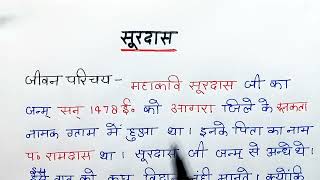 सूरदास
जीवन परिचय - महाकवि सूरदास जी का
जन्म सन् 1478 ई० को आगरा जिले के रुनकता
नामक ग्राम में हुआ था। इनके पिता का नाम
प० रामदास था। सूरदास जी जन्म से अन्धे थे।
बात को कुछ विद्वान नहीं मानते। क्योंकि